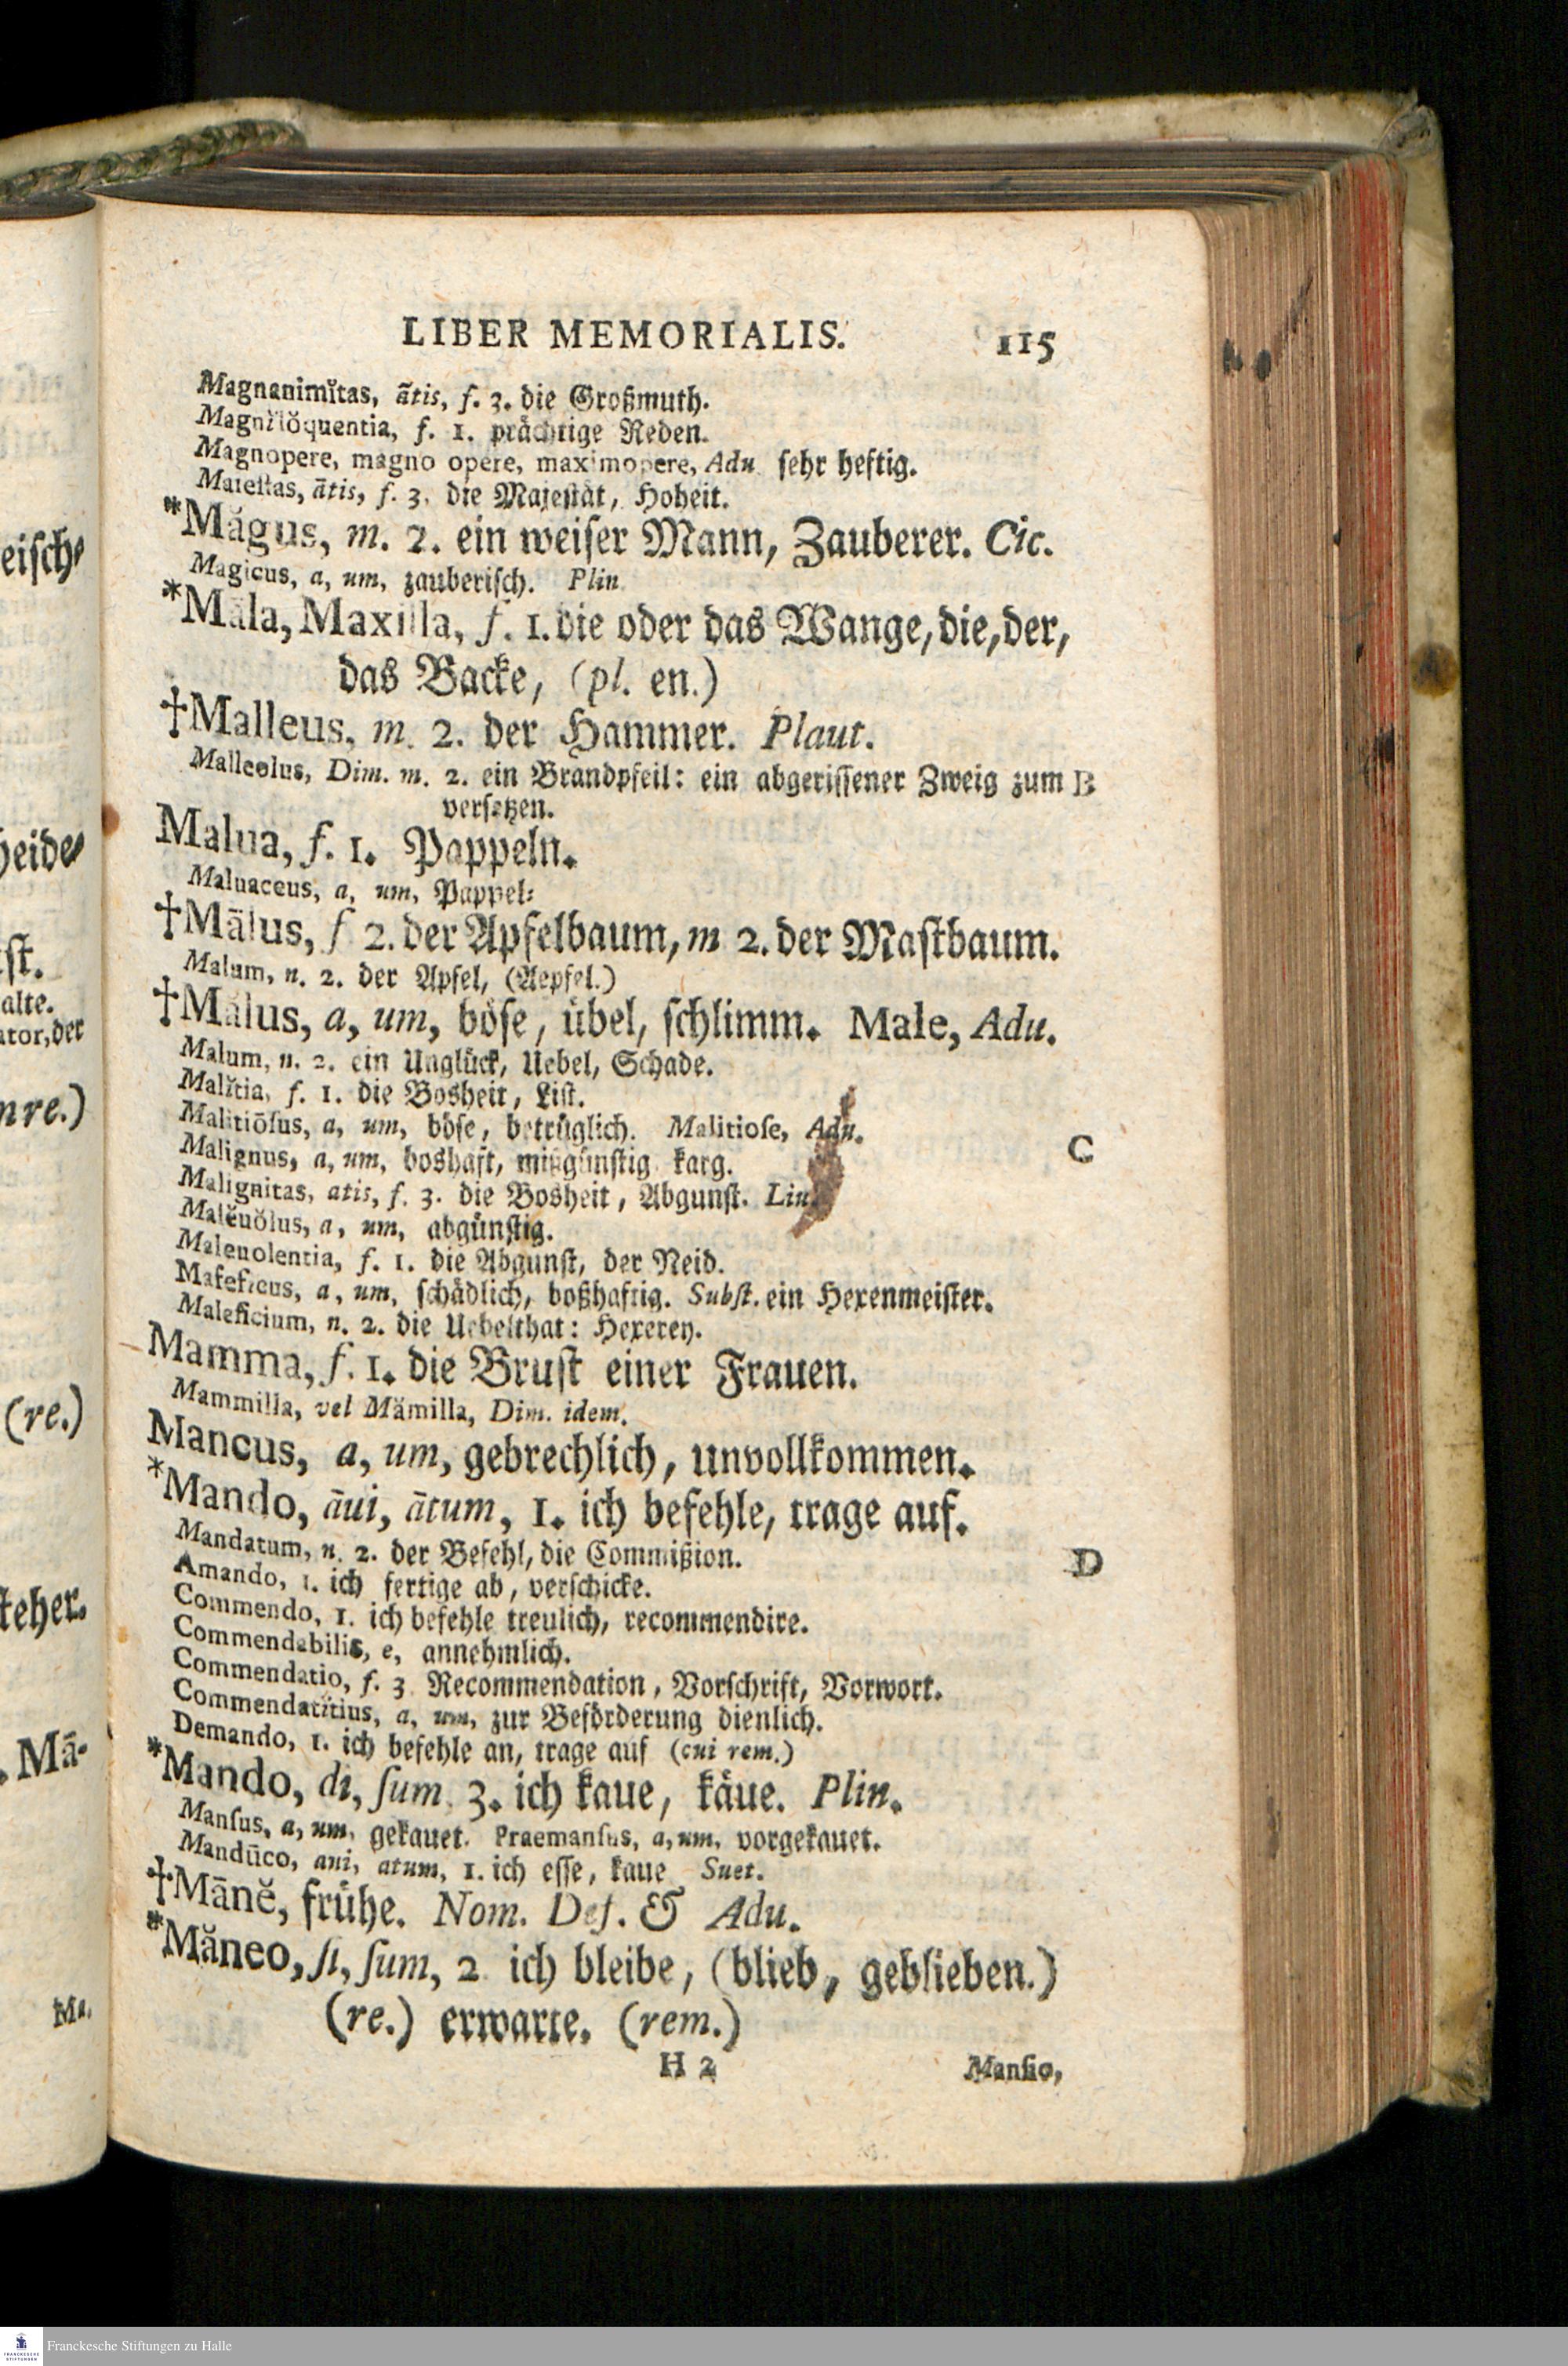 LIBER MEMORIALIS. 115
Magnanimĭtas, ātis, f. 3. die Großmuth.
Magnĭlŏquentia, f. 1. prächtige Reden.
Magnopere, magno opere, maximopere, Adu. sehr heftig.
Maiestas, ātis, f. 3. die Majestät, Hoheit.
*Măgus, m. 2. ein weiser Mann, Zauberer. Cic.
Magicus, a, um, zauberisch. Plin.
*Māla, Maxilla, f. 1. die oder das Wange, die, der,
das Backe, (pl. en.)
†Malleus, m. 2. der Hammer. Plaut.
Malleolus, Dim. m. 2. ein Brandpfeil: ein abgerissener Zweig zum B
versetzen.
Malua, f. 1. Pappeln.
Maluaceus, a, um, Pappel⸗
†Mālus, f 2. der Apfelbaum, m 2. der Mastbaum.
Malum, n. 2. der Apfel, (Aepfel.)
†Mălus, a, um, böse, übel, schlimm. Male, Adu.
Malum, n. 2. ein Unglück, Uebel, Schade.
Malĭtia, f. 1. die Bosheit, List.
Malitiōſus, a, um, böse, betrüglich. Malitioſe, Adu.
Malignus, a, um, boshaft, mißgünstig karg. C
Malignitas, atis, f. 3. die Bosheit, Abgunst. Liu.
Malĕuŏlus, a, um, abgünstig.
Maleuolentia, f. 1. die Abgunst, der Neid.
Maleficus, a, um, schädlich, boßhaftig. Subſt. ein Hexenmeister.
Maleficium, n. 2. die Uebelthat: Hexerey.
Mamma, f. 1. die Brust einer Frauen.
Mammilla, vel Mămilla, Dim. idem.
Mancus, a, um, gebrechlich, unvollkommen.
*Mando, āui, ātum, 1. ich befehle, trage auf.
Mandatum, n. 2. der Befehl, die Commißion. D
Amando, 1. ich fertige ab, verschicke.
Commendo, 1. ich befehle treulich, recommendire.
Commendabilis, e, annehmlich.
Commendatio, f. 3 Recommendation, Vorschrift, Vorwort.
Commendatĭtius, a, um, zur Beförderung dienlich.
Demando, 1. ich befehle an, trage auf (cui rem.)
*Mando, di, ſum. 3. ich kaue, käue. Plin.
Manſus, a, um, gekauet. Praemanſus, a, um, vorgekauet.
Mandūco, aui, atum, 1. ich esse, kaue Suet.
†Mānĕ, frühe. Nom. Def. & Adu.
*Măneo, ſi, ſum, 2 ich bleibe, (blieb, geblieben.)
(re.) erwarte. (rem.)
H 2 Manſio,
eisch⸗
heide⸗
st.
alte.
ator, der
(re.)
teher.
. Mā-
Ma,
Franckesche Stiftungen zu Halle